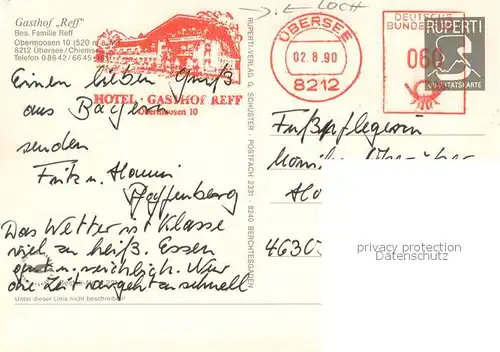 Gasthof „Reff"
Bes. Familie Reff
Obermoosen 10 (520 m
8212 Übersee/Chiemse
Telefon 0 86 42 / 66 45
HOTEL · GASTHOF REFF
Obermoosen 10
LOCH
ÜBERSEE
02.8.90
8212
DEUTSCHE
BUNDESP
060
RUPERTI
QUALITÄTSKARTE
RUPERTI-VERLAG G. SCHUSTER · POSTFACH 2331 · 8240 BERCHTESGADEN
Einen lieben Gruß
aus Bayern
senden
Fritz u. Hanni
Pfaffenberg
Das Wetter ist Klasse
viel zu heiß. Essen
gut u. reichlich. Nur
die Zeit vergeht zu schnell
Unter dieser Linie nicht beschreiben!
Fußpflegerin
4630
privacy protection
Datenschutz